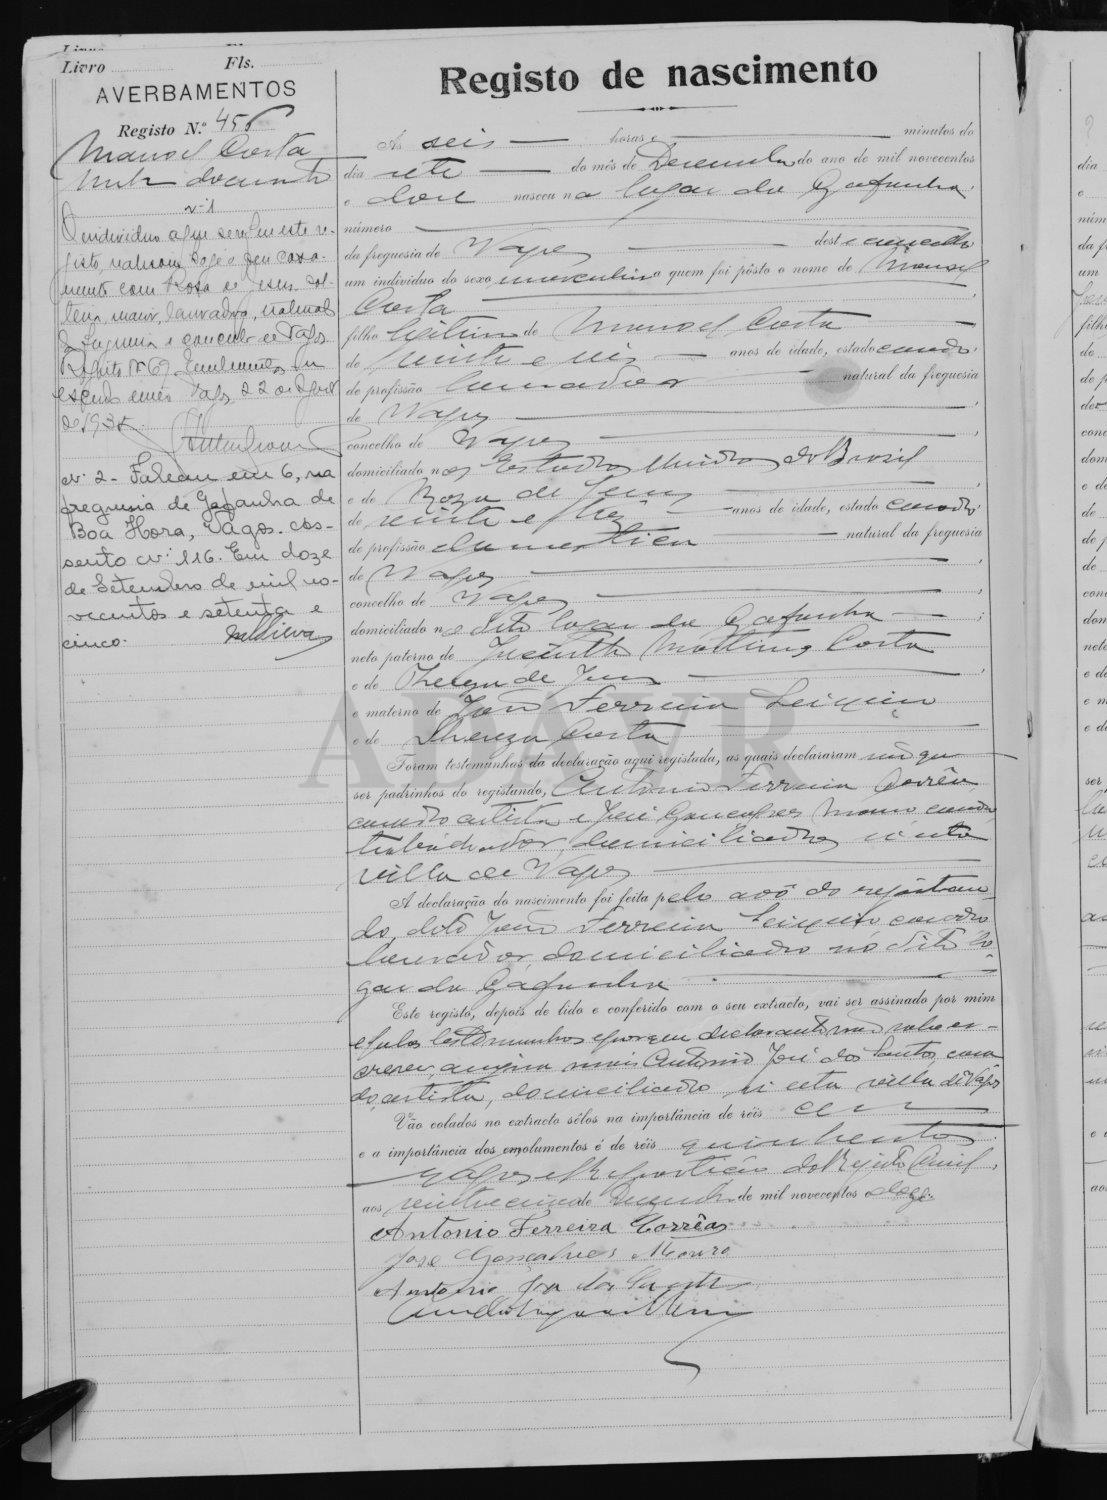 Livro Fls.
AVERBAMENTOS
Registo N.º 456
Manoel Costa
n.º 1
O individuo a que se refere este re-
gisto, realisou hoje o seu casa-
mento com Rosa de Jesus, sol-
teira, maior, lavradora, natural
da freguesia e concelho de Vagos.
Registo N.º 69. Emolumentos
Vagos 22 de
de 193
n.º 2 - Faleceu em 6, na
freguesia de Gafanha da
Boa Hora, Vagos. As-
sento n.º 116. Em doze
de Setembro de mil no-
vecentos e setenta e
cinco. MSilva
Registo de nascimento
Ás seis horas e minutos do
dia sete do mês de Dezembro do ano de mil novecentos
e doze nasceu no lugar da Gafanha,
número
da freguesia de Vagos deste concelho
um individuo do sexo masculino a quem foi pôsto o nome de Manoel
Costa,
filho legitimo de Manoel Costa
de vinte e seis anos de idade, estado casado,
de profissão lavrador natural da freguesia
de Vagos,
concelho de Vagos
domiciliado nos Estados Unidos do Brasil
e de Roza de Jesus
de vinte e três anos de idade, estado casada,
de profissão domestica natural da freguesia
de Vagos,
concelho de Vagos,
domiciliada no dito lugar da Gafanha;
neto paterno de Jacintho Martins Costa
e de Thereza de Jesus,
e materno de João Ferreira Seixeiro
e de Thereza Costa
Foram testemunhas da declaração aqui registada, as quais declararam não que
ser padrinhos do registando, Antonio Ferreira Corrêa,
casado artista e José Gonçalves Mouro casado
trabalhador, domiciliados n'esta
villa de Vagos
A declaração do nascimento foi feita pelo avô do registan-
do, dito João Ferreira Seixeiro casado
lavrador, domiciliado no dito lo-
gar da Gafanha
Este registo, depois de lido e conferido com o seu extracto, vai ser assinado por mim
e pelas testemunhas e porque declarante não sabe es-
crever, assina mais Antonio José dos Santos, casa
do, artista, domiciliado n'esta villa de Vagos
Vão colados no extracto sêlos na importância de réis cem
e a importância dos emolumentos é de réis quinhentos
Vagos e Repartição do Registo Civil,
aos vinte e cinco de Dezembro de mil novecentos e doze.
Antonio Ferreira Corrêa
José Gonçalves Mouro
Antonio José dos Santos
ADAVR